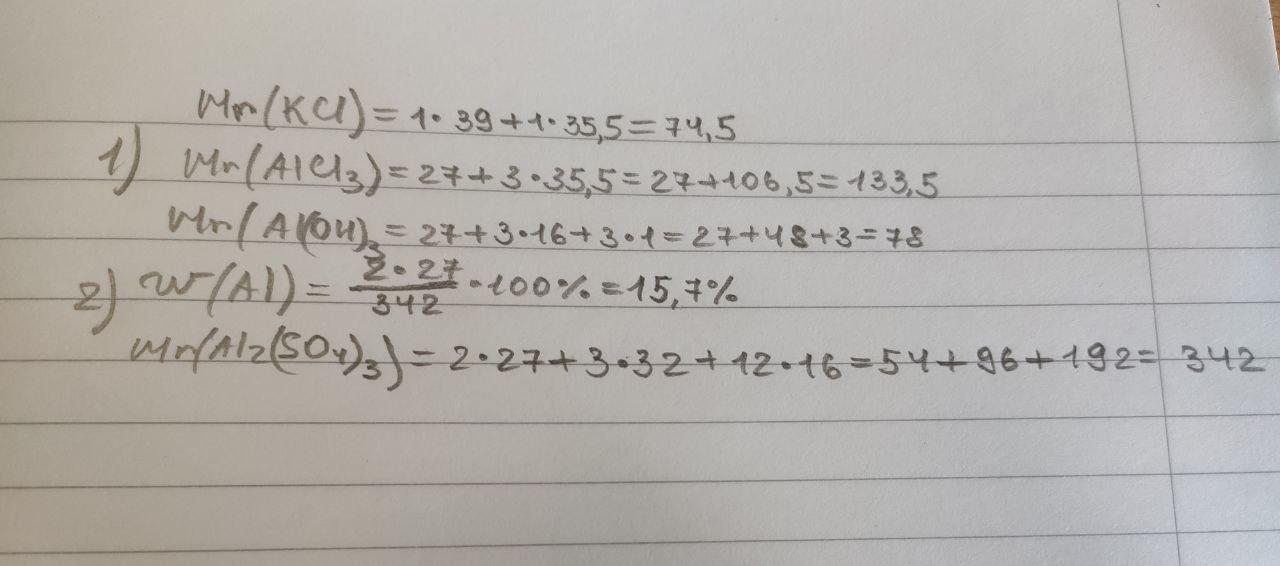 Mr(KCl) = 1 · 39 + 1 · 35,5 = 74,5
1) Mr(AlCl₃) = 27 + 3 · 35,5 = 27 + 106,5 = 133,5
Mr(Al(OH)₃ = 27 + 3 · 16 + 3 · 1 = 27 + 48 + 3 = 78
2) W(Al) = 2 · 27 / 342 · 100% = 15,7%
Mr(Al₂(SO₄)₃) = 2 · 27 + 3 · 32 + 12 · 16 = 54 + 96 + 192 = 342